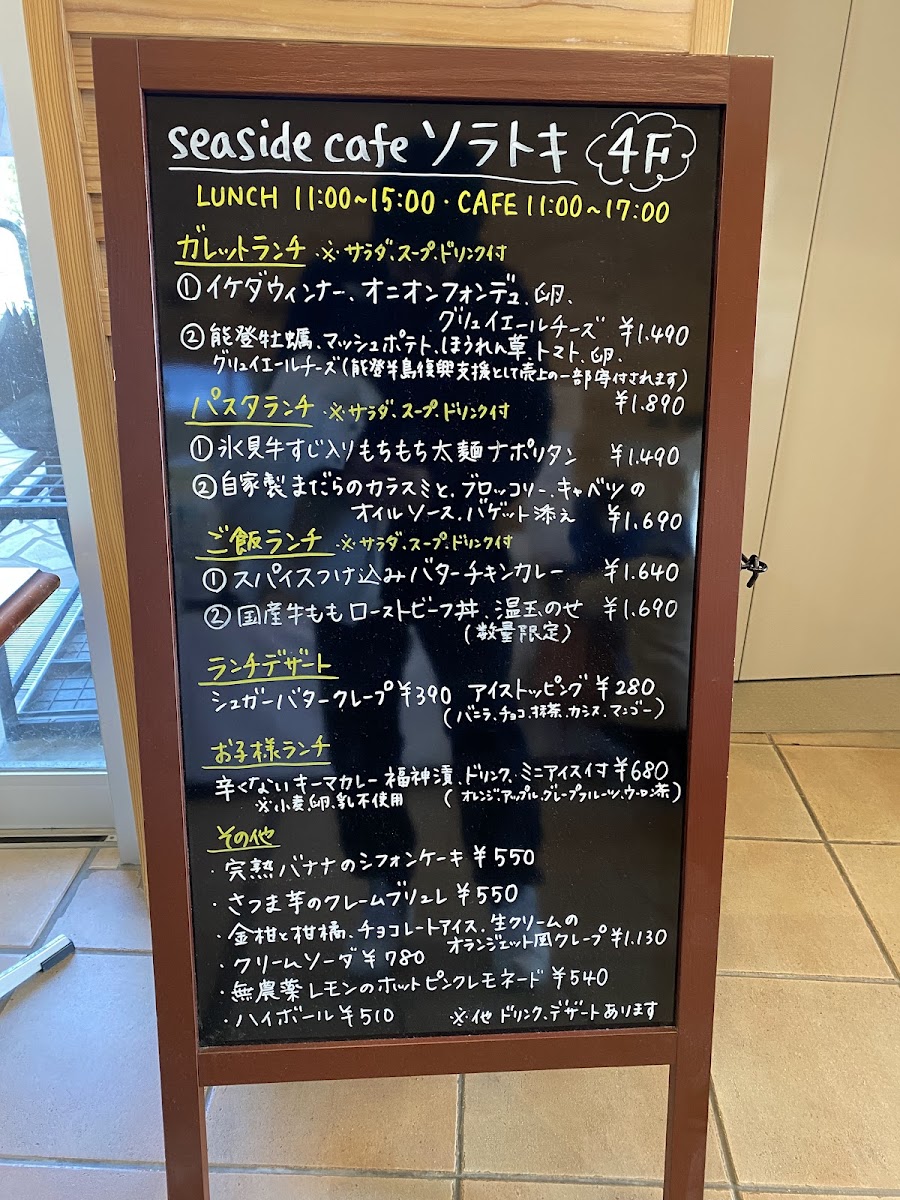 seaside cafe ソラトキ 4F
LUNCH 11:00~15:00・CAFE 11:00~17:00
ガレットランチ ※サラダ、スープ、ドリンク付
①イケダウィンナー、オニオンフォンデュ、卵、
グリュイエールチーズ ¥1.490
②能登牡蠣、マッシュポテト、ほうれん草、トマト、卵、
グリュイエールチーズ(能登半島復興支援として売上の一部寄付されます)
¥1.890
パスタランチ ※サラダ、スープ、ドリンク付
①氷見牛すじ入りもちもち太麺ナポリタン ¥1.490
②自家製まだらのカラスミと、ブロッコリー、キャベツの
オイルソース、バゲット添え ¥1.690
ご飯ランチ ※サラダ、スープ、ドリンク付
①スパイスつけ込みバターチキンカレー ¥1.640
②国産牛ももローストビーフ丼、温玉のせ ¥1.690
(数量限定)
ランチデザート
シュガーバタークレープ ¥390 アイストッピング ¥280
(バニラ、チョコ、抹茶、カシス、マンゴー)
お子様ランチ
辛くないキーマカレー 福神漬、ドリンク、ミニアイス付 ¥680
※小麦、卵、乳不使用 (オレンジ、アップル、グレープフルーツ、ウーロン茶)
その他
・完熟バナナのシフォンケーキ ¥550
・さつま芋のクレームブリュレ ¥550
・金柑と柑橘、チョコレートアイス、生クリームの
オランジェット風クレープ ¥1.130
・クリームソーダ ¥780
・無農薬レモンのホットピンクレモネード ¥540
・ハイボール ¥510 ※他ドリンク、デザートあります